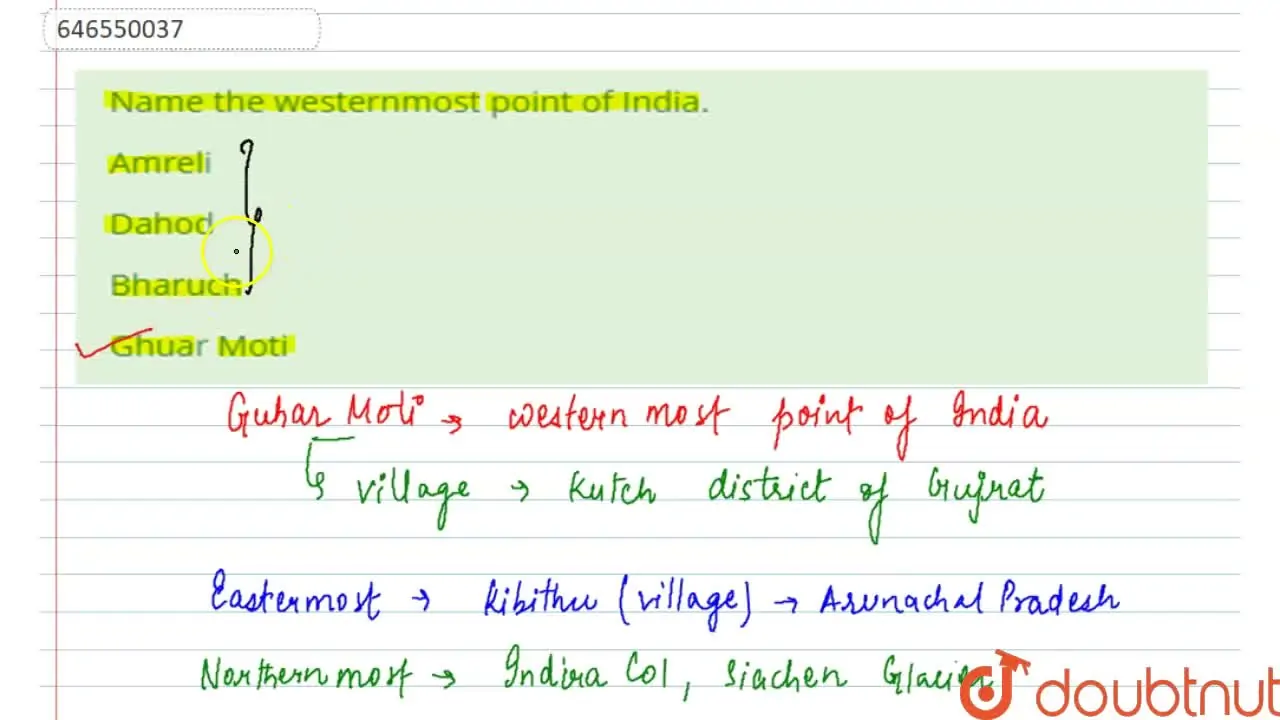 646550037
Name the westernmost point of India.
Amreli
Dahod
Bharuch
Ghuar Moti
Guhar Moti → western most point of India
village → Kutch district of Gujrat
Eastermost → Kibithu (village) → Arunachal Pradesh
Northernmost → Indira Col, Siachen Glacier
doubtnut